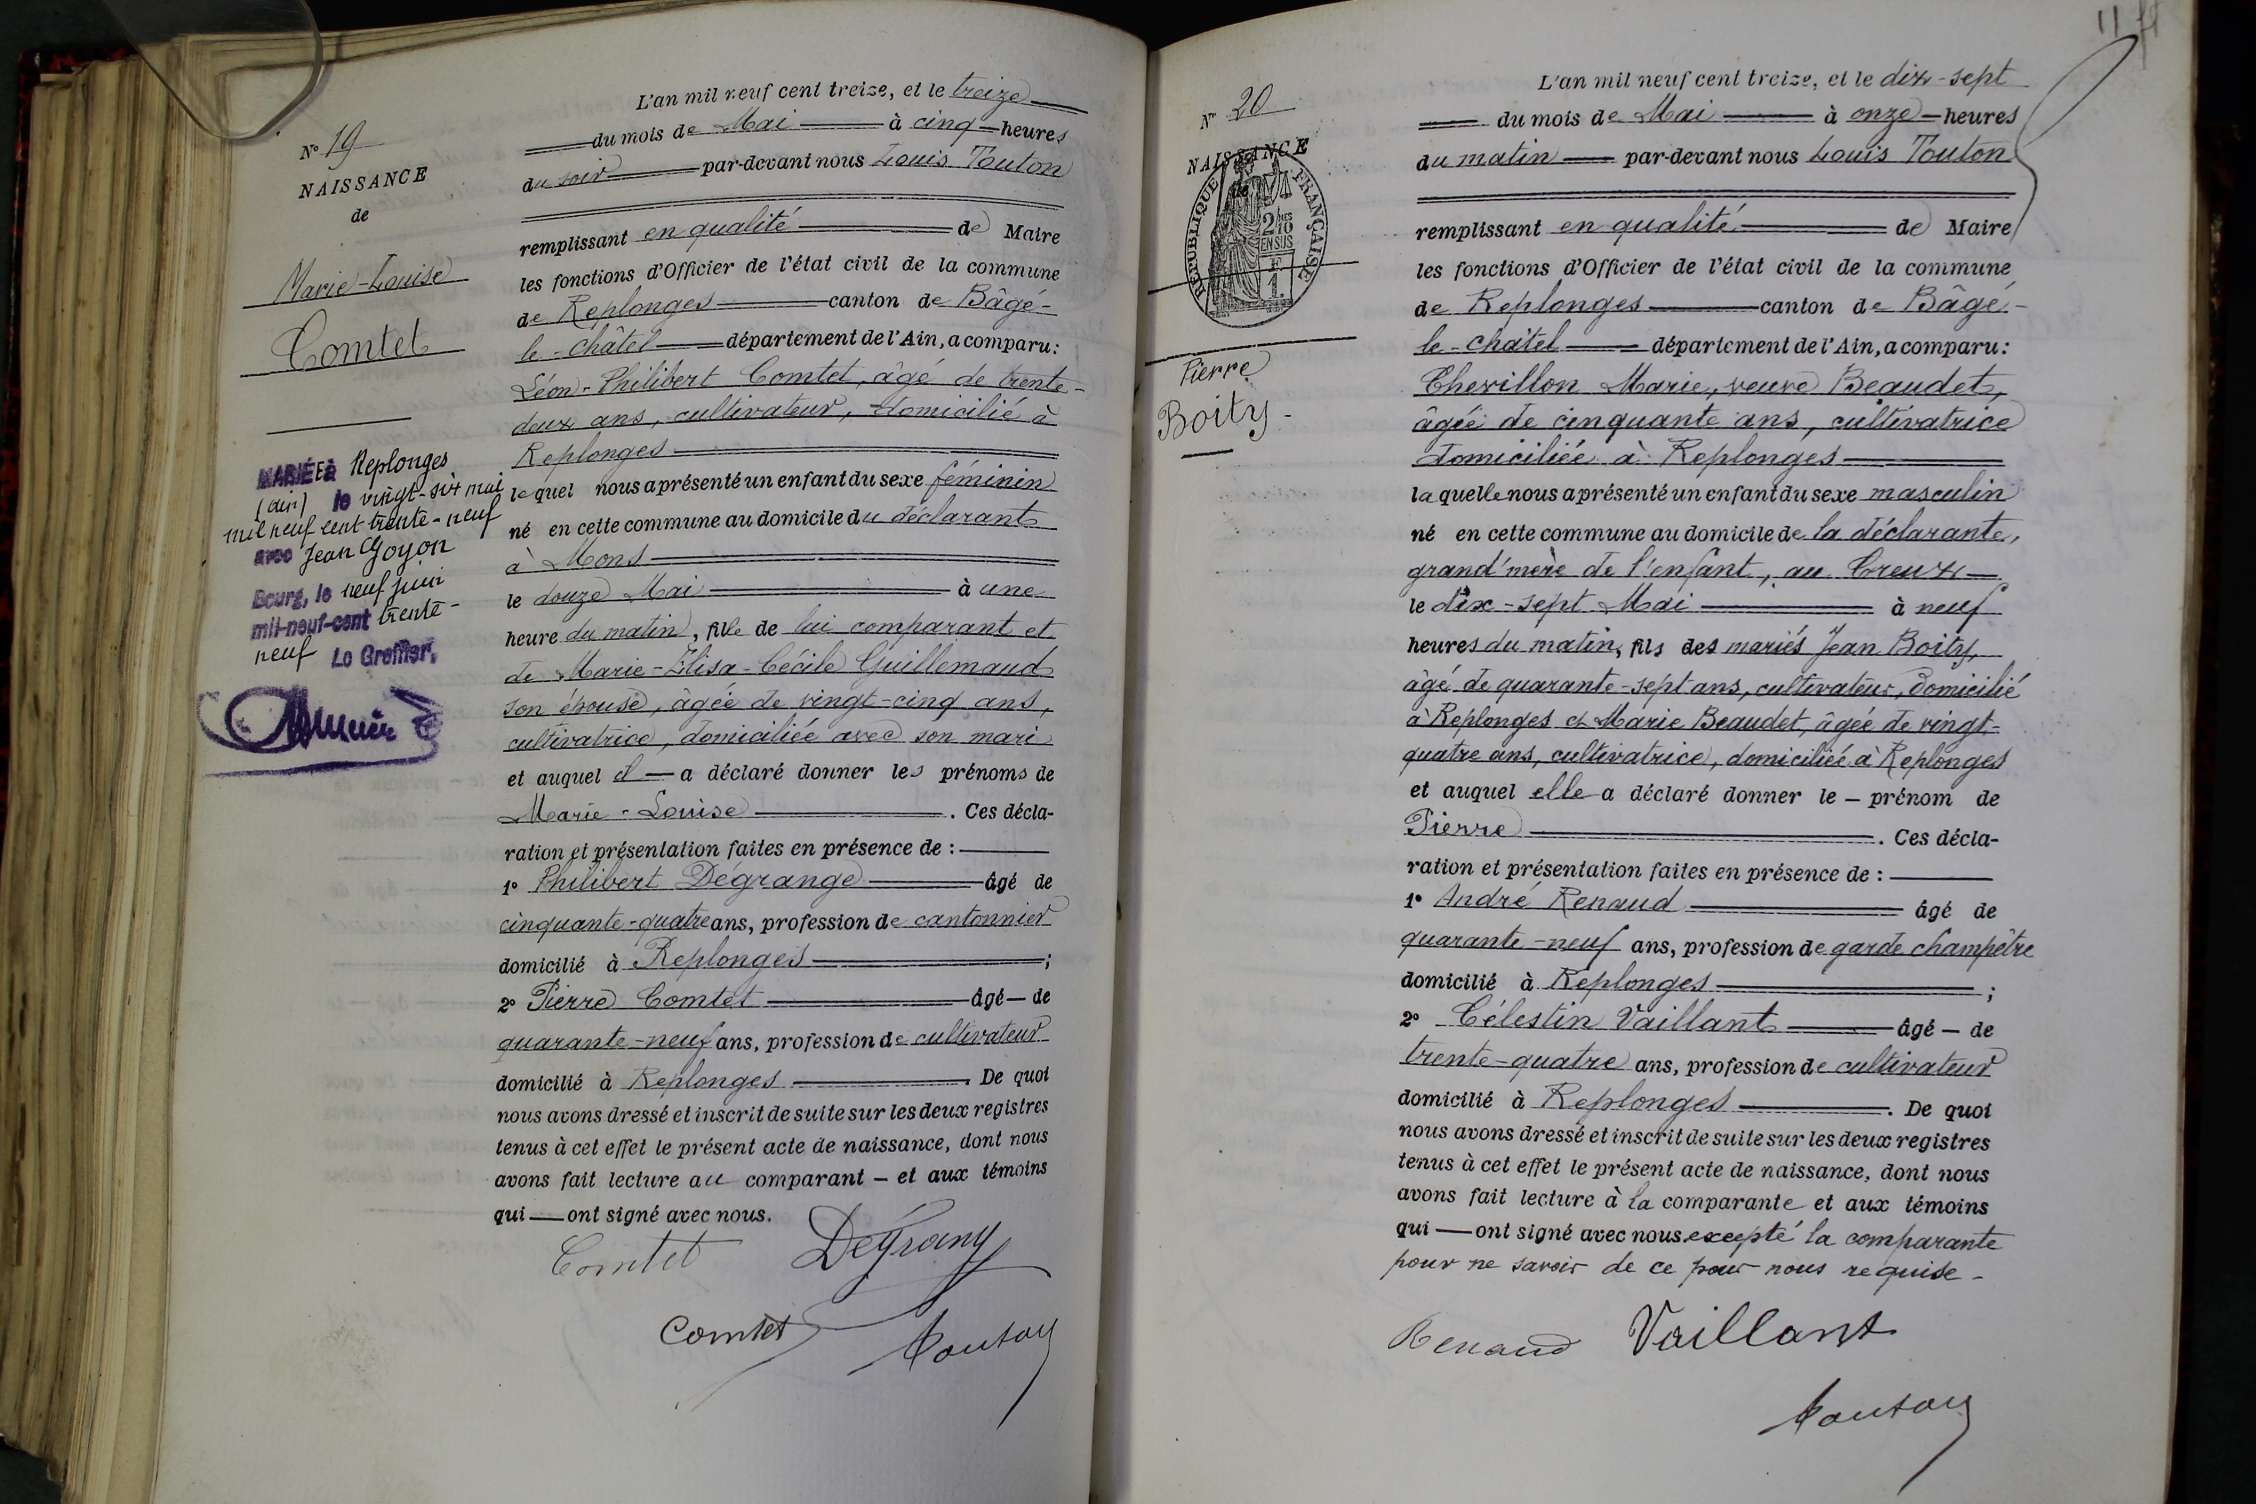 N° 19
NAISSANCE
de
Marie-Louise
Comtet
MARIÉE à Replonges
(Ain) le vingt-six mai
mil neuf cent trente-neuf
avec Jean Goyon
Bourg, le neuf juin
mil-neuf-cent trente-
neuf Le Greffier,
L'an mil neuf cent treize, et le treize
du mois de Mai à cinq heures
du soir par-devant nous Louis Touton
remplissant en qualité de Maire
les fonctions d'Officier de l'état civil de la commune
de Replonges canton de Bâgé-
le-châtel département de l'Ain, a comparu :
Léon-Philibert Comtet, âgé de trente-
deux ans, cultivateur, domicilié à
Replonges
lequel nous a présenté un enfant du sexe féminin
né en cette commune au domicile du déclarant
à Mons
le douze Mai à une
heure du matin, fille de lui comparant et
de Marie-Elisa-Cécile Guillemaud
son épouse, âgée de vingt-cinq ans,
cultivatrice, domiciliée avec son mari
et auquel il a déclaré donner les prénoms de
Marie-Louise. Ces décla-
ration et présentation faites en présence de :
1° Philibert Dégrange âgé de
cinquante-quatre ans, profession de cantonnier
domicilié à Replonges ;
2° Pierre Comtet âgé de
quarante-neuf ans, profession de cultivateur
domicilié à Replonges. De quoi
nous avons dressé et inscrit de suite sur les deux registres
tenus à cet effet le présent acte de naissance, dont nous
avons fait lecture au comparant — et aux témoins
qui — ont signé avec nous.
Comtet Degrang
Comtet Touton
11
N° 20
NAISSANCE
de
RÉPUBLIQUE FRANÇAISE
2/10 MES
EN SUS
F
1.
Pierre
Boity
L'an mil neuf cent treize, et le dix-sept
du mois de Mai à onze heures
du matin par-devant nous Louis Touton
remplissant en qualité de Maire
les fonctions d'Officier de l'état civil de la commune
de Replonges canton de Bâgé-
le-châtel département de l'Ain, a comparu :
Chevillon Marie, veuve Beaudet,
âgée de cinquante ans, cultivatrice
domiciliée à Replonges
laquelle nous a présenté un enfant du sexe masculin
né en cette commune au domicile de la déclarante,
grand'mère de l'enfant, au Creux
le dix-sept Mai à neuf
heures du matin, fils des mariés Jean Boity,
âgé de quarante-sept ans, cultivateur, domicilié
à Replonges et Marie Beaudet, âgée de vingt-
quatre ans, cultivatrice, domiciliée à Replonges
et auquel elle a déclaré donner le — prénom de
Pierre. Ces décla-
ration et présentation faites en présence de :
1° André Renaud âgé de
quarante-neuf ans, profession de garde champêtre
domicilié à Replonges ;
2° Célestin Vaillant âgé — de
trente-quatre ans, profession de cultivateur
domicilié à Replonges. De quoi
nous avons dressé et inscrit de suite sur les deux registres
tenus à cet effet le présent acte de naissance, dont nous
avons fait lecture à la comparante et aux témoins
qui — ont signé avec nous excepté la comparante
pour ne savoir de ce par nous requise -
Renaud Vaillant
Touton